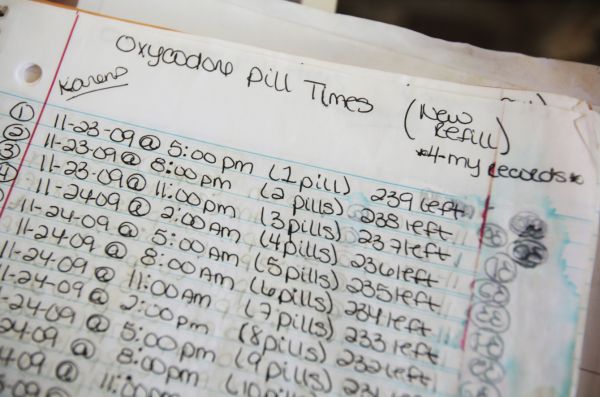 Oxycodone pill Times (New Refill)
Karens *4-my records*
① 11-23-09 @ 5:00 pm (1 pill) 239 left
② 11-23-09 @ 8:00 pm (2 pills) 238 left
③ 11-23-09 @ 11:00 pm (3 pills) 237 left
④ 11-24-09 @ 2:00 AM (4 pills) 236 left
11-24-09 @ 5:00 AM (5 pills) 235 left
11-24-09 @ 8:00 AM (6 pills) 234 left
11-24-09 @ 11:00 AM (7 pills) 233 left
-24-09 @ 2:00 pm (8 pills) 232 left
24-09 @ 5:00 pm (9 pills)
4-09 @ 8:00 pm (10 pills
09 @ 11:00 pm